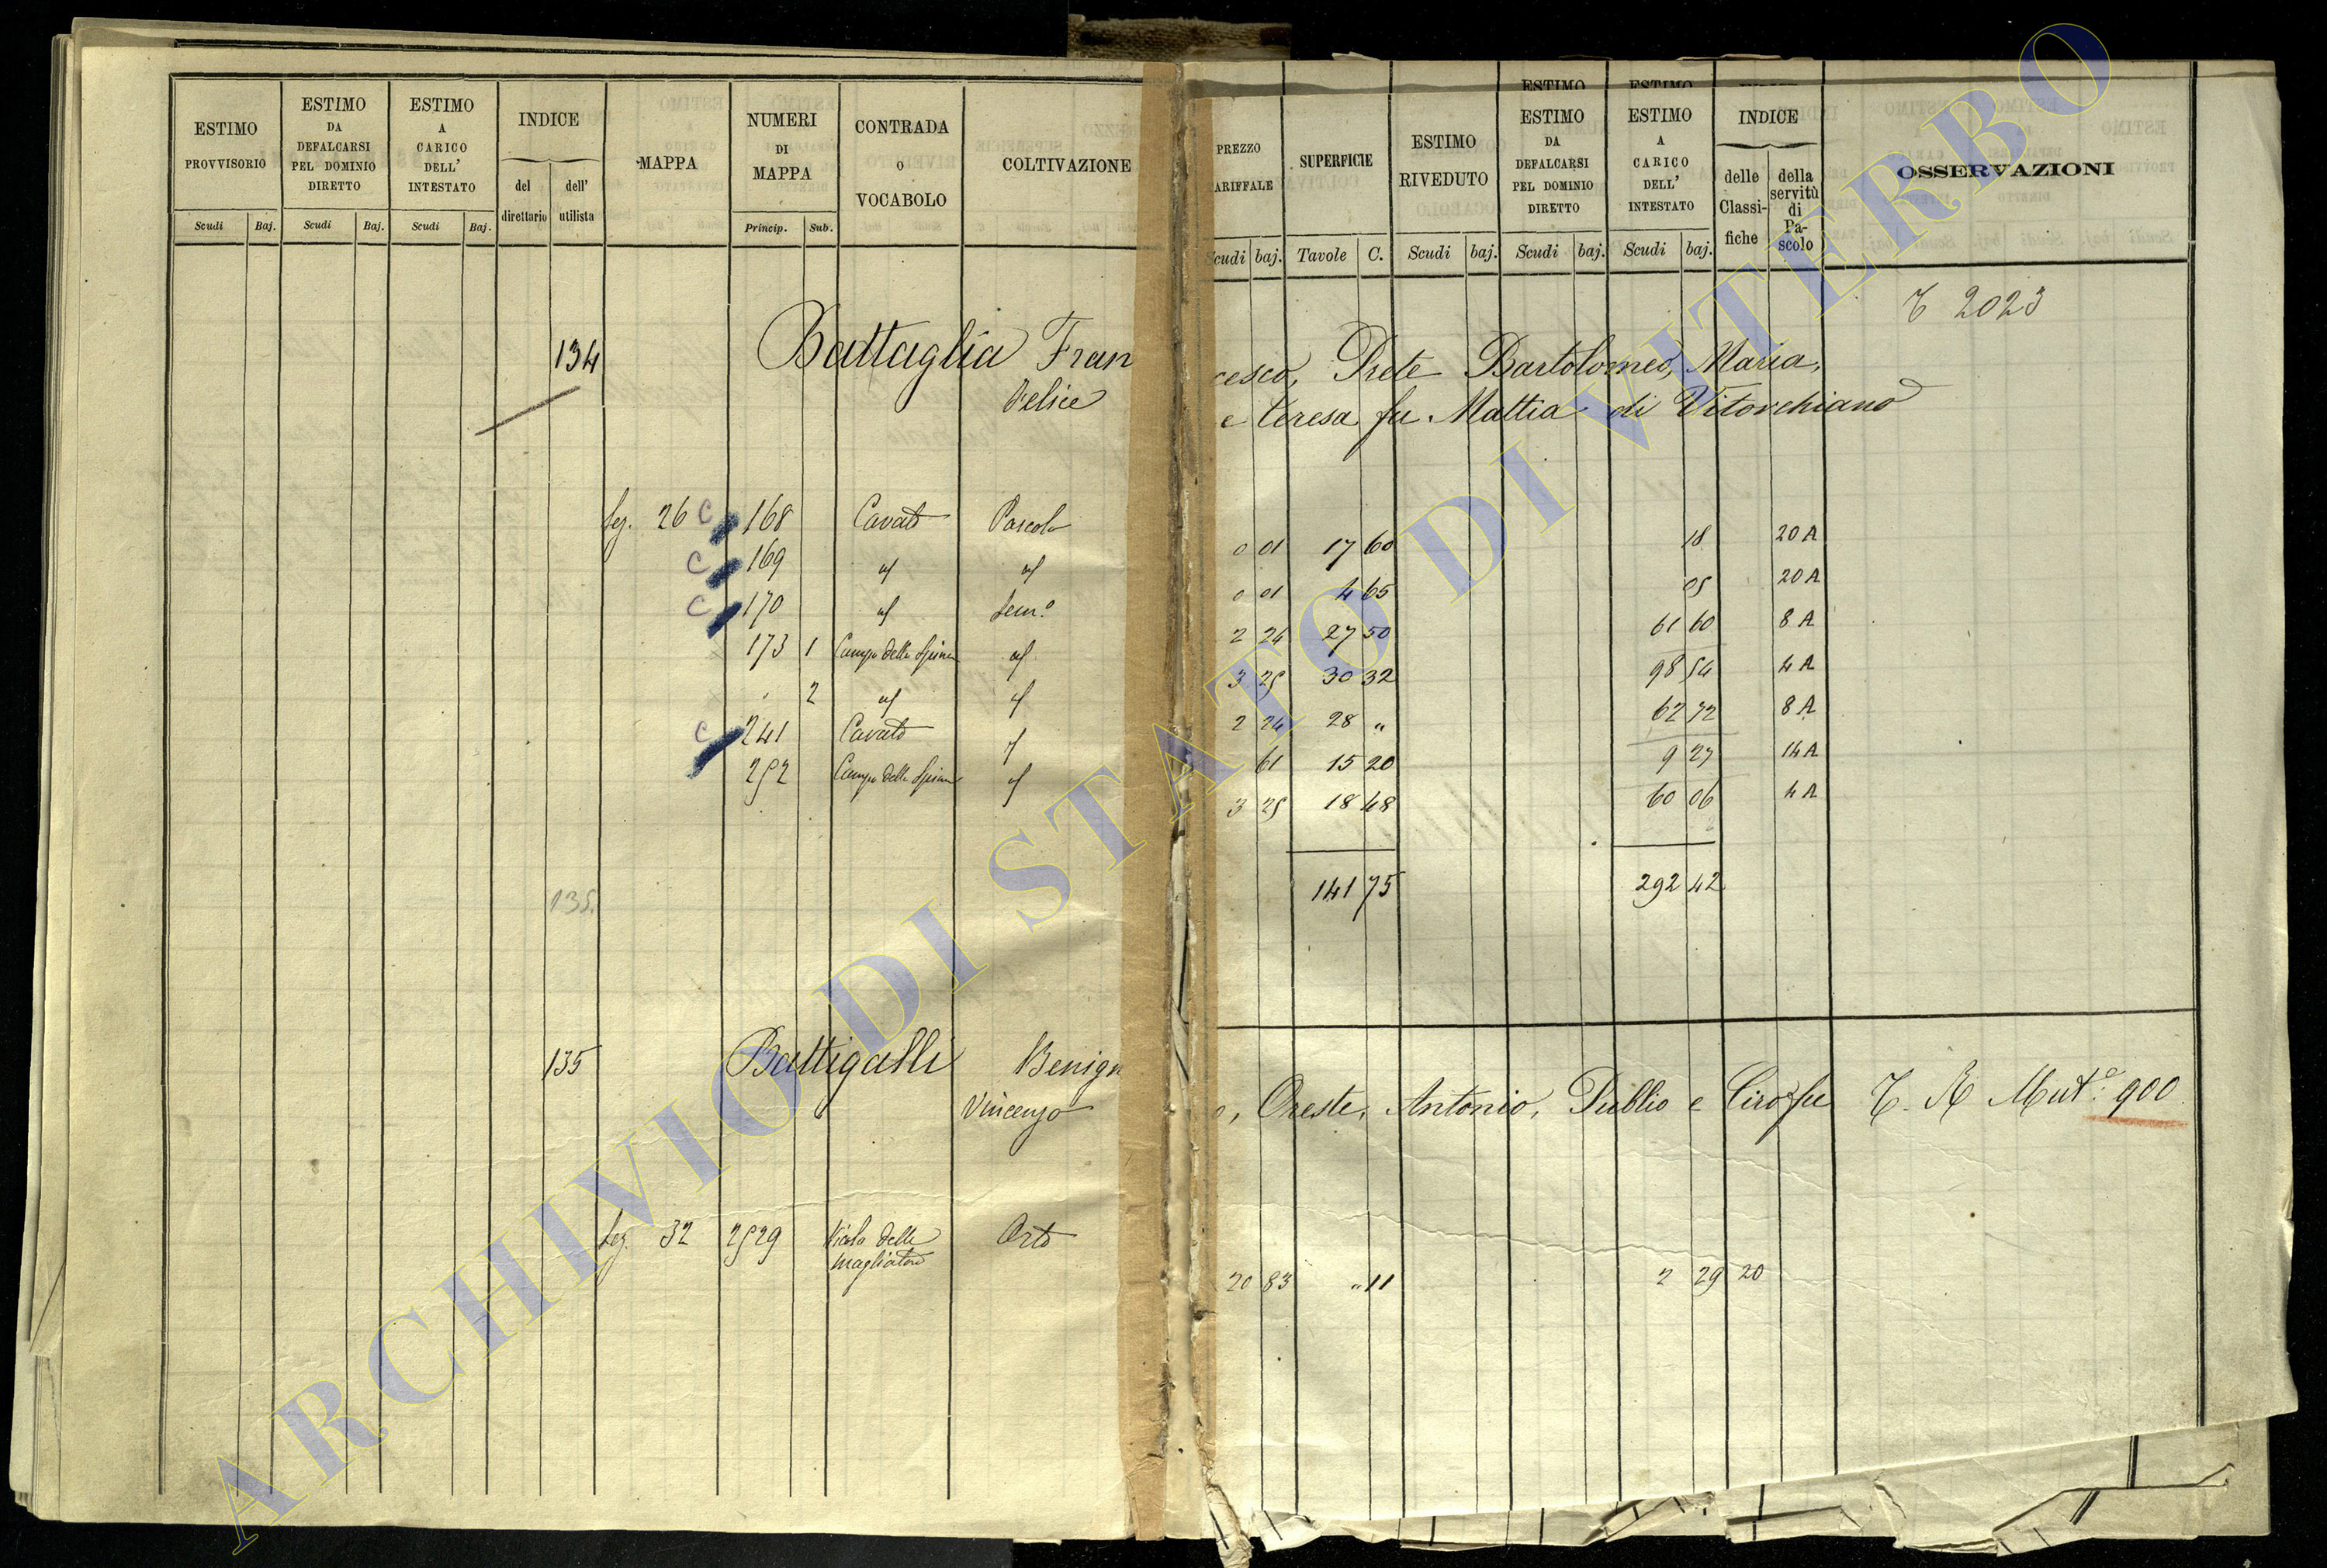 ESTIMO PROVVISORIO Scudi Baj.
ESTIMO DA DEFALCARSI PEL DOMINIO DIRETTO Scudi Baj.
ESTIMO A CARICO DELL' INTESTATO Scudi Baj.
INDICE del direttario dell' utilista
MAPPA
NUMERI DI MAPPA Princip. Sub.
CONTRADA O VOCABOLO
COLTIVAZIONE
PREZZO ARIFFALE Scudi baj.
SUPERFICIE Tavole C.
ESTIMO RIVEDUTO Scudi baj.
ESTIMO DA DEFALCARSI PEL DOMINIO DIRETTO Scudi baj.
ESTIMO A CARICO DELL' INTESTATO Scudi baj.
INDICE delle Classifiche della servitù di Pascolo
OSSERVAZIONI
2023
134 Battaglia Francesco, Prete Bartolomeo, Maria,
Felice e Teresa fu Mattia di Vitorchiano
Sez. 26 C 168 Cavato Pascolo 0 01 17 60 18 20 A
C 169 0 01 4 65 05 20 A
C 170 Sem.o 2 24 27 50 61 60 8 A
173 1 Campo della Spina 3 25 30 32 98 54 4 A
2 2 24 28 " 62 72 8 A
C 241 Cavato 61 15 20 9 27 14 A
252 Campo della Spina 3 25 18 48 60 06 4 A
141 75 292 42
135.
135 Battigalli Benigno, Oreste, Antonio, Publio e Ciro fu
Vincenzo
T. R Mut.e 900
Sez. 32 2529 Vicolo delle Orto 20 83 " 11 2 29 20
magliatore
ARCHIVIO DI STATO DI VITERBO